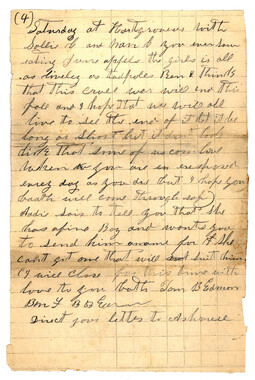 (4)
Saturday at Hartgroves with
Sollie B and Nan B you ever saw
eating June appels the girls is all
as liveley as tadpoles Ben I think
that this cruel war will end this
fall and I hope that we will all
live to see the end of it let it be
long or short but it dont look
like that some of us
taken you are in exsposed
every day as you are but I hope you
boath will come through safe
Sais to tell you that She
has a fine Boy and wants you
to send him a name for it She
cant get one that will suit him
I will close for this time with
love to you both Sam B Edmon
Ben F B
Direct your letter to